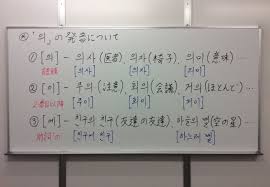 ※「의」の発音について
① [의] - 의사(医者), 의자(椅子), 의미(意味) …
語頭 [의사] [의자] [의미]
② [이] - 주의(注意), 회의(会議), 거의(ほとんど) …
2番目以降 [주이] [회이] [거이]
③ [에] - 친구의 친구(友達の友達), 하늘의 별(空の星) …
助詞の [친구에 친구] [하느레 별]